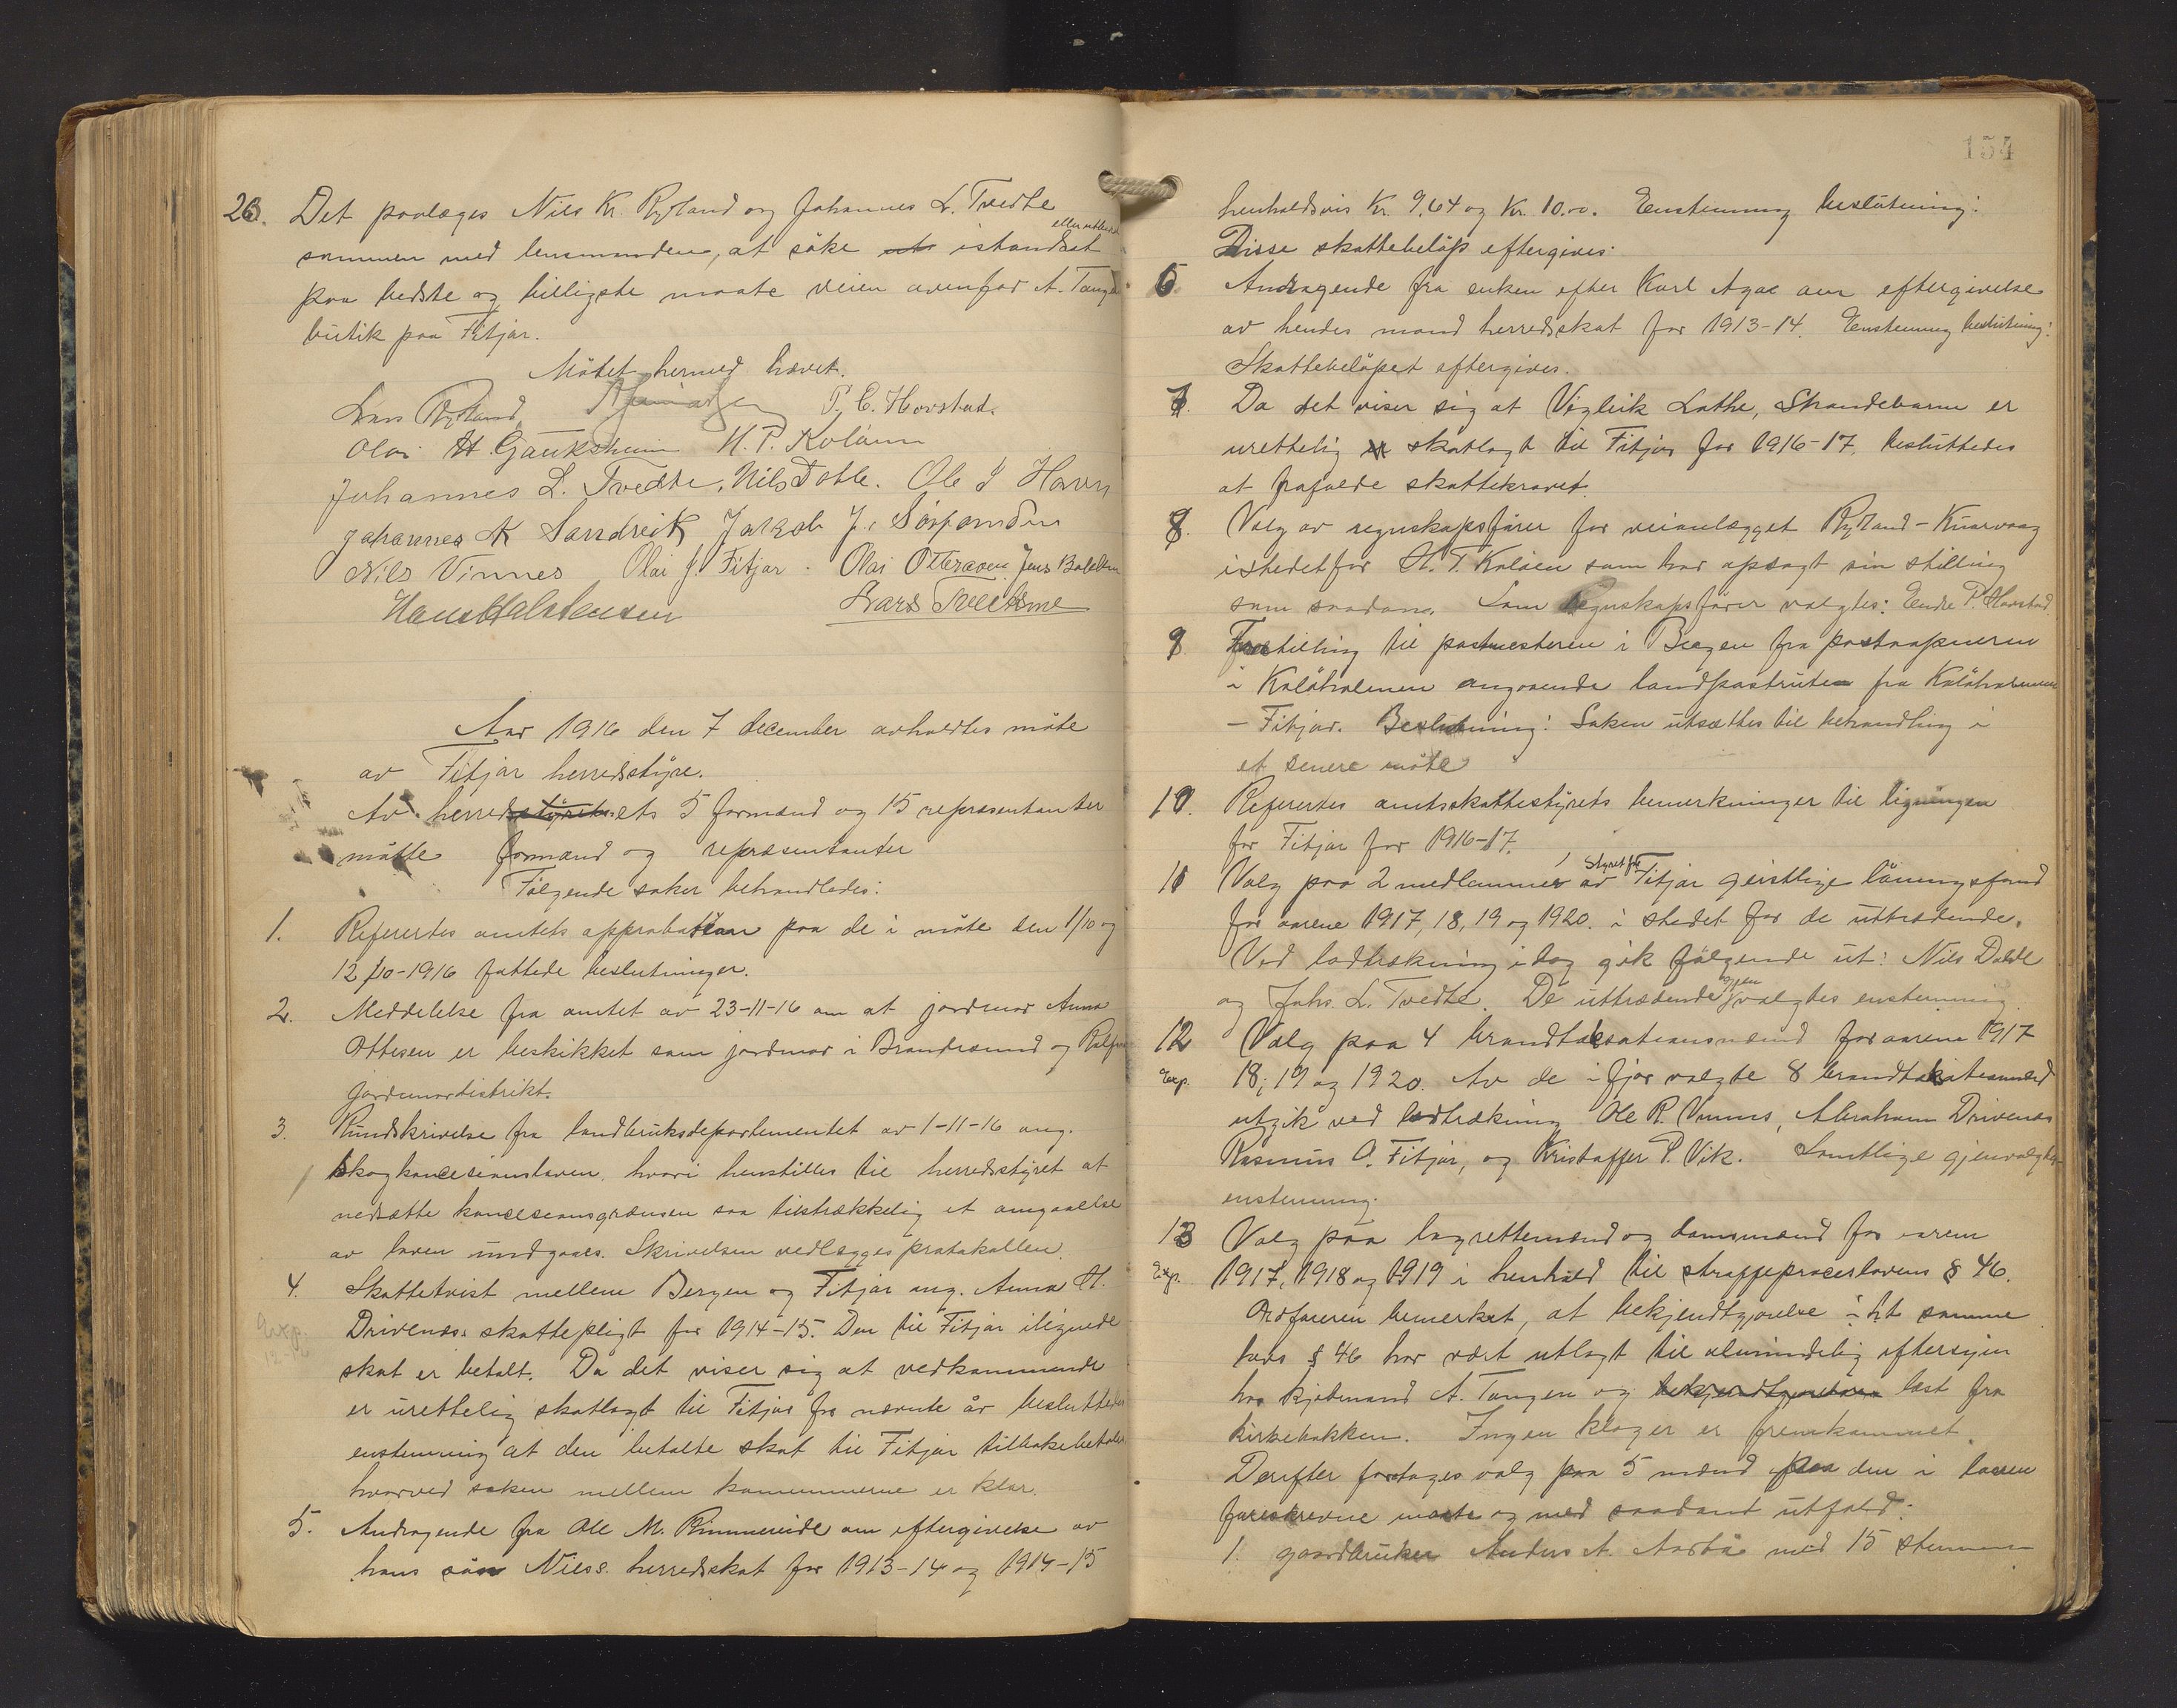 26. Det paalægges Nils Kr. Rydland og Johannes L. Tvedte
sammen med lensmanden, at søke istandsat
paa bedste og billigste maate veien ovenfor A. Tangen
butik paa Fitjar.
Møtet hermed hævet.
Lars Rydland P. C. Hovstad.
Olai H. Gauksheim H. T. Koløen
Johannes L. Tvedte. Nils Dahle. Ole J Havn
Johannes K Sandvik Jakob J. Sørfonden
Nils Vinnes Olai J. Fitjar. Olai Otteraaen Jens
Hans Halstensen Lars Tveitane
Aar 1916 den 7 december avholdtes møte
av Fitjar herredsstyre.
Av herredsstyrets 5 formænd og 15 repræsentanter
møtte formænd og repræsentanter
Følgende saker behandledes:
1. Refertes amtets approbation paa de i møte den 1/10 og
12/10-1916 fattede beslutninger.
2. Meddelelse fra amtet av 23-11-16 om at jordmor Anna
Ottesen er beskikket som jordmor i Brandesund og
jordmordistrikt.
3. Rundskrivelse fra landbruksdepartementet av 1-11-16 ang.
skogkoncesionsloven, hvori henstilles til herredsstyret at
nedsætte koncesionsgrænsen saa tilstrækkelig at omgaaelse
av loven undgaaes. Skrivelsen vedlægges protokollen.
4. Skattetvist mellem Bergen og Fitjar ang. Anna H.
Exp.
Drivenes skattepligt for 1914-15. Den til Fitjar ilignede
skat er betalt. Da det viser sig at vedkommende
er urettelig skatlagt til Fitjar for nævnte år besluttedes
enstemmig at den betalte skat til Fitjar tilbakebetales
hvorved saken mellem kommunerne er klar.
5. Andragende fra Ole M. Rimmereide om eftergivelse av
hans søn Nils's herredsskat for 1913-14 og 1914-15
154
henholdsvis Kr. 9.64 og Kr. 10.00. Enstemmig beslutning:
Disse skattebeløp eftergives.
6 Andragende fra enken efter Karl Agae om eftergivelse
av hendes mand herredsskat for 1913-14. Enstemmig beslutning:
Skattebeløpet eftergives.
7. Da det viser sig at Vigleik Lothe, Strandebarm er
urettelig skatlagt til Fitjar for 1916-17, besluttedes
at frafalde skattekravet.
8. Valg av regnskapsfører for veianlægget Rydland - Knarvaag
istedetfor H. T. Koløen som har opsagt sin stilling
som saadan. Som Regnskapsfører valgtes: Endre P. Hovstad
9 Forestilling til postmesteren i Bergen fra postaapneren
i Koløholmen angaaende landpostruten fra Koløholmen
- Fitjar. Beslutning: Saken utsættes til behandling i
et senere møte
10. Refertes amtsskattestyrets bemerkninger til ligningen
for Fitjar for 1916-17.
11 Valg paa 2 medlemmer av styret for Fitjar geistlige lønningsfond
for aarene 1917, 18, 19 og 1920. i stedet for de uttrædende.
Ved lodtrækning idag gik følgende ut: Nils Dahle
og Johs. L. Tvedte. De uttrædende gjenvalgtes enstemmig
12 Valg paa 4 brandtaksationsmænd for aarene 1917
Exp. 18, 19 og 1920. Av de i fjor valgte 8 brandtakstmænd
utgik ved lodtrækning Ole R. Vinnes, Abraham Drivenes
Rasmus O. Fitjar, og Kristoffer P. Vik. Samtlige gjenvalgtes
enstemmig.
13 Valg paa lagrettemænd og domsmænd for aarene
Exp. 1917, 1918 og 1919 i henhold til straffeproceslovens § 46.
Ordføreren bemerket, at bekjendtgjørelse i ht samme
lovs § 46 har vært utlagt til almindelig eftersyn
hos kjøbmand A. Tangen og læst fra
kirkebakken. Ingen klager er fremkommet.
Derefter foretages valg paa 5 mænd paa den i loven
foreskrevne maate og med saadant utfald:
1. gaardbruker Anders A. Aarbø med 15 stemmer